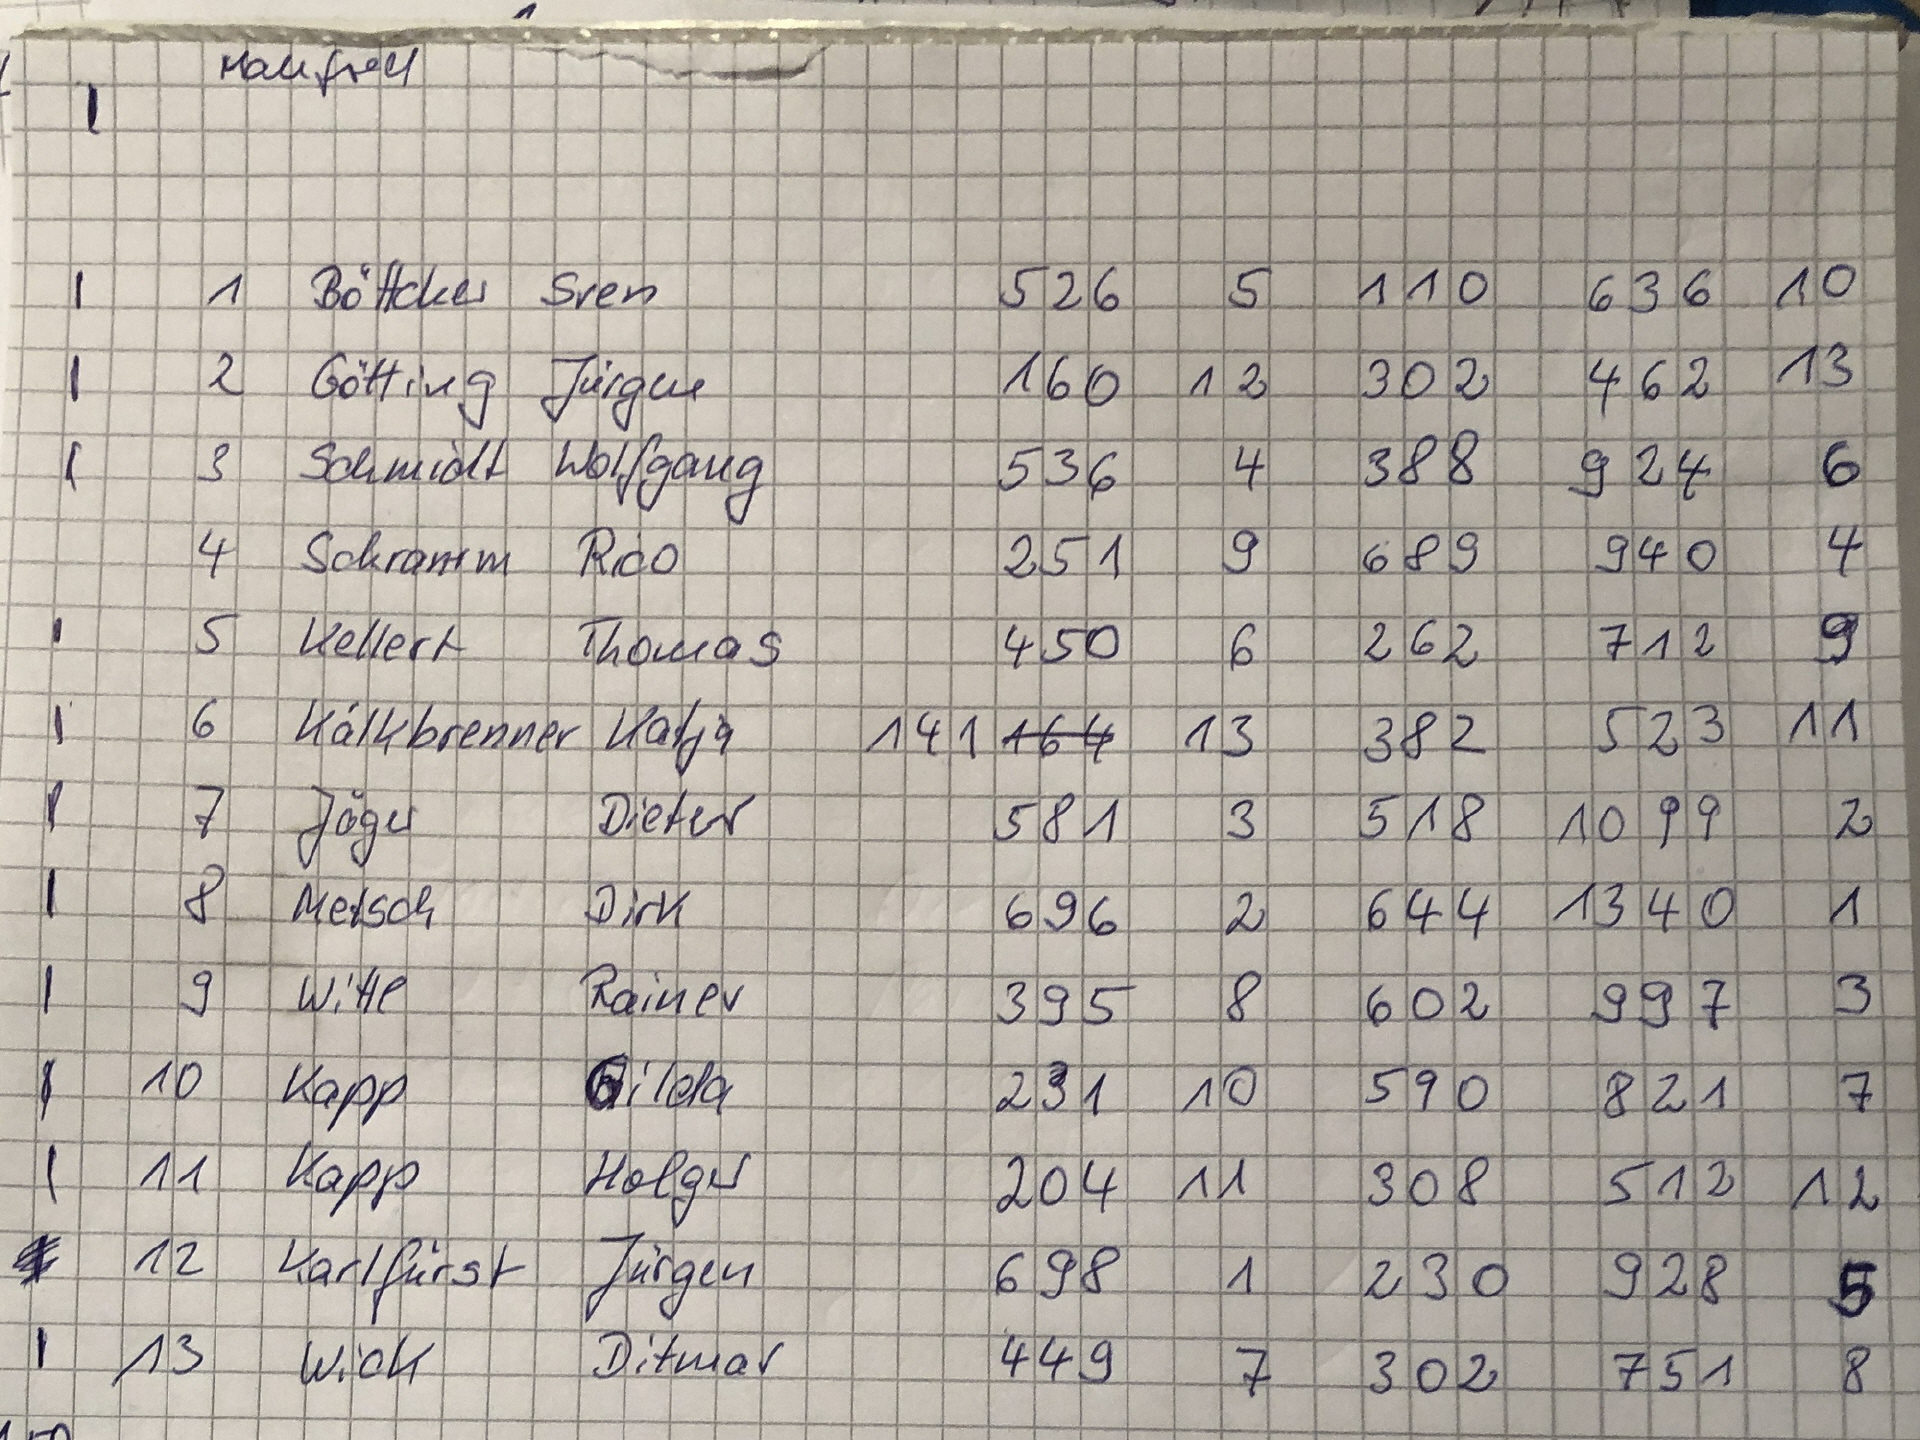 Manfred
1 Böttcher Sven 526 5 110 636 10
2 Götting Jürgen 160 12 302 462 13
3 Schmidt Wolfgang 536 4 388 924 6
4 Schramm Rico 251 9 689 940 4
5 Kellert Thomas 450 6 262 712 9
6 Kalkbrenner Katja 141 164 13 382 523 11
7 Jäger Dieter 581 3 518 1099 2
8 Metsch Dirk 696 2 644 1340 1
9 Witte Rainer 395 8 602 997 3
10 Kapp Gilda 231 10 590 821 7
11 Kapp Holger 204 11 308 512 12
12 Karlfürst Jürgen 698 1 230 928 5
13 Wick Ditmar 449 7 302 751 8